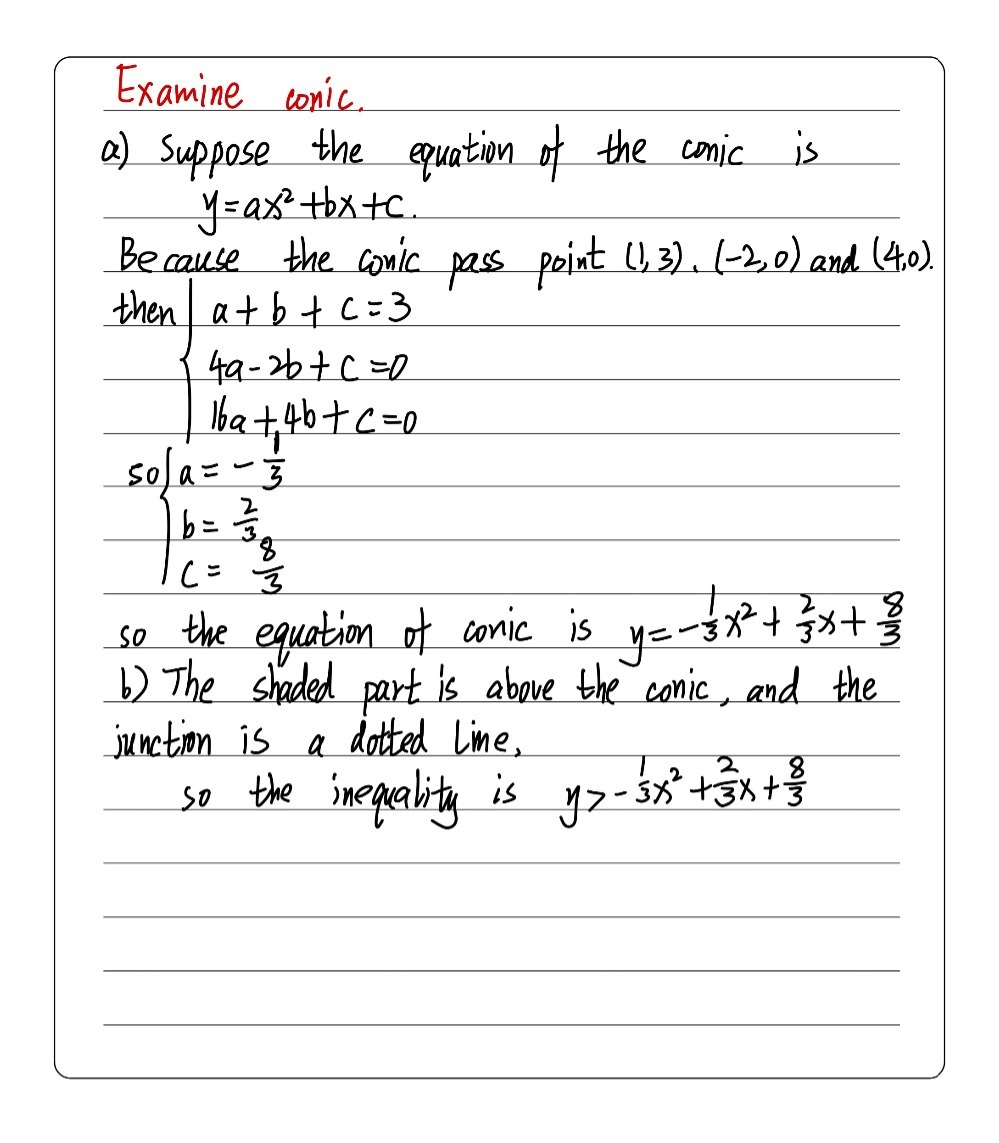 Examine conic.
a) Suppose the equation of the conic is
y=ax²+bx+c.
Because the conic pass point (1,3)、(-2,0) and (4,0).
then { a+b+c=3
4a-2b+c=0
16a+4b+c=0
so { a=-1/3
b=2/3
c=8/3
so the equation of conic is y=-1/3x²+2/3x+8/3
b) The shaded part is above the conic, and the
junction is a dotted line,
so the inequality is y>-1/3x²+2/3x+8/3